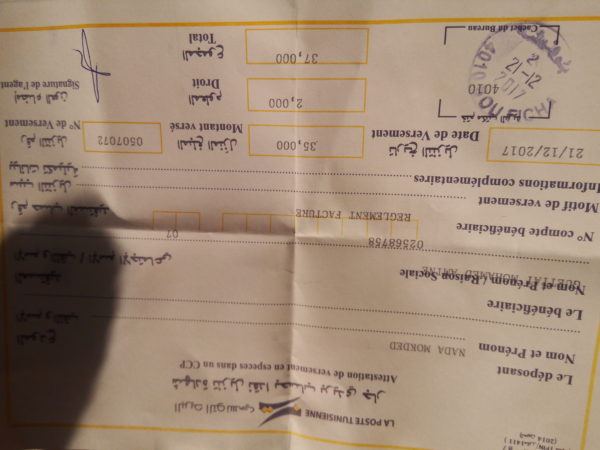 LA POSTE TUNISIENNE البريد التونسي
شهادة تنزيل نقدا بحساب بريدي جار
Attestation de versement en especes dans un CCP
Le déposant المودع
Nom et Prénom NADA MOKDED الاسم واللقب
Le bénéficiaire المستفيد
Nom et Prénom / Raison Sociale MOHAMMED AMINE الاسم واللقب / الاسم الاجتماعي
N° compte bénéficiaire 025689758 07 رقم حساب المستفيد
Motif de versement REGLEMENT FACTURE سبب التنزيل
Informations complémentaires بيانات تكميلية
Date de Versement تاريخ التنزيل 21/12/2017
Montant versé المبلغ المنزل 35,000
N° de Versement رقم التنزيل 0507072
Droit المعلوم 2,000
Total المجموع 37,000
Signature de l'agent إمضاء العون
Cachet du Bureau
4010
21-12
2017